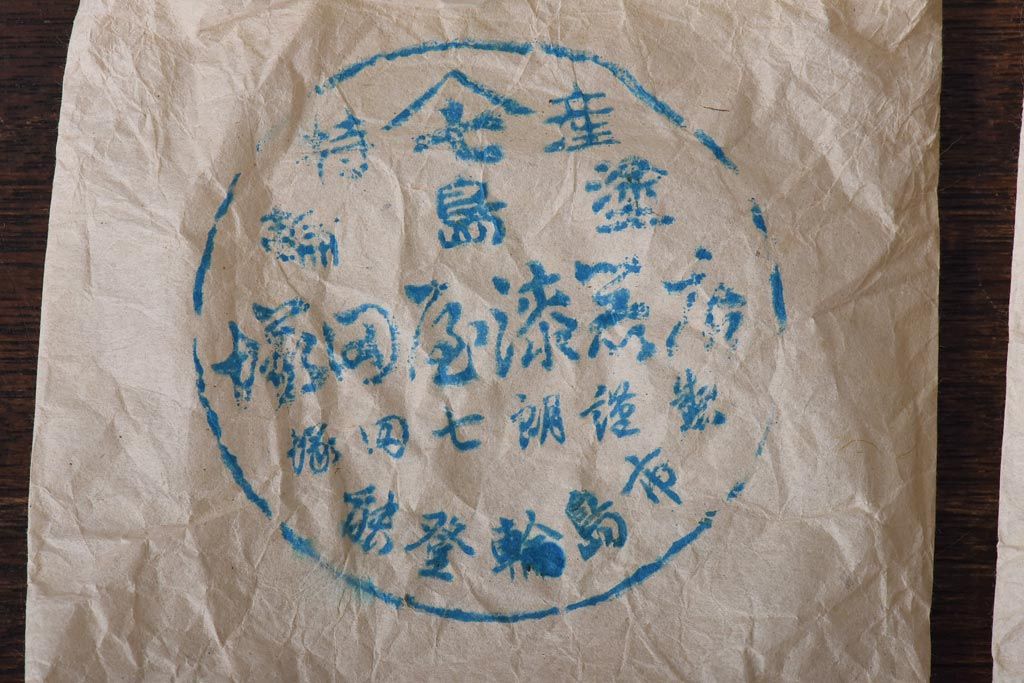 特 𠆢七 産
輪島塗
塚田屋漆器店
塚田七朗謹製
能登輪島市